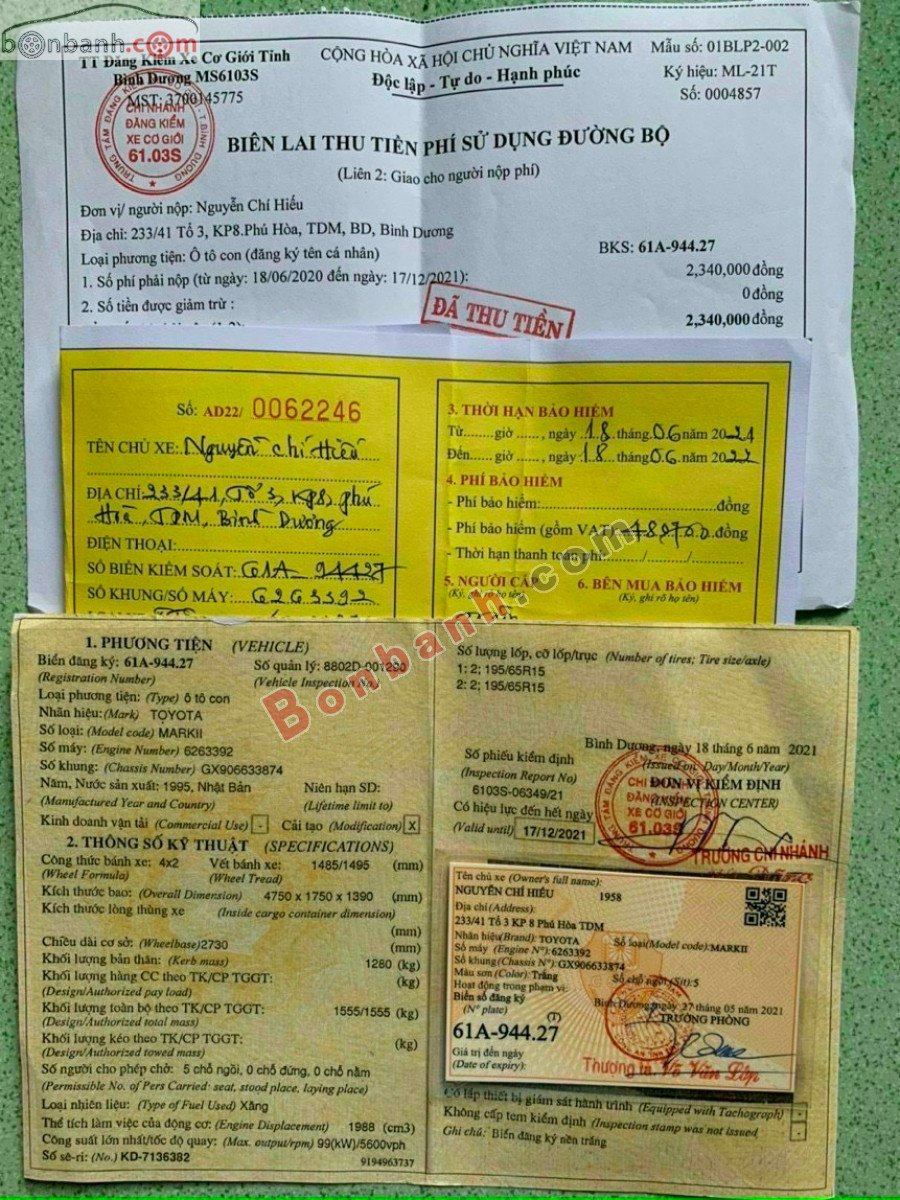 bonbanh.com
TT Đăng Kiểm Xe Cơ Giới Tỉnh
Bình Dương MS6103S
MST: 3700145775
CỘNG HÒA XÃ HỘI CHỦ NGHĨA VIỆT NAM
Độc lập - Tự do - Hạnh phúc
Mẫu số: 01BLP2-002
Ký hiệu: ML-21T
Số: 0004857
CHI NHÁNH
ĐĂNG KIỂM
XE CƠ GIỚI
61.03S
BIÊN LAI THU TIỀN PHÍ SỬ DỤNG ĐƯỜNG BỘ
(Liên 2: Giao cho người nộp phí)
Đơn vị/ người nộp: Nguyễn Chí Hiếu
Địa chỉ: 233/41 Tổ 3, KP8.Phú Hòa, TDM, BD, Bình Dương
Loại phương tiện: Ô tô con (đăng ký tên cá nhân)
BKS: 61A-944.27
1. Số phí phải nộp (từ ngày: 18/06/2020 đến ngày: 17/12/2021):
2,340,000đồng
2. Số tiền được giảm trừ :
0đồng
2,340,000đồng
ĐÃ THU TIỀN
Số: AD22/ 0062246
TÊN CHỦ XE: Nguyễn Chí Hiếu
ĐỊA CHỈ: 233/41, Tổ 3, KP8, Phú
Hoà, TDM, Bình Dương
ĐIỆN THOẠI:
SỐ BIỂN KIỂM SOÁT: 61A 94427
SỐ KHUNG/SỐ MÁY: 6263392
3. THỜI HẠN BẢO HIỂM
Từ...... giờ ......, ngày 18 tháng 06 năm 2021
Đến...... giờ ......, ngày 18 tháng 06 năm 2022
4. PHÍ BẢO HIỂM
- Phí bảo hiểm: đồng
- Phí bảo hiểm (gồm VAT) 480700 đồng
- Thời hạn thanh toán phí: / /
5. NGƯỜI CẤP
(Ký, ghi rõ họ tên)
6. BÊN MUA BẢO HIỂM
(Ký, ghi rõ họ tên)
Bonbanh.com
1. PHƯƠNG TIỆN (VEHICLE)
Biển đăng ký: 61A-944.27
(Registration Number)
Số quản lý: 8802D-001290
(Vehicle Inspection No.)
Loại phương tiện: (Type) ô tô con
Nhãn hiệu: (Mark) TOYOTA
Số loại: (Model code) MARKII
Số máy: (Engine Number) 6263392
Số khung: (Chassis Number) GX906633874
Năm, Nước sản xuất: 1995, Nhật Bản
(Manufactured Year and Country)
Niên hạn SD:
(Lifetime limit to)
Kinh doanh vận tải (Commercial Use) -
Cải tạo (Modification) X
2. THÔNG SỐ KỸ THUẬT (SPECIFICATIONS)
Công thức bánh xe: 4x2
(Wheel Formula)
Vết bánh xe: 1485/1495 (mm)
(Wheel Tread)
Kích thước bao: (Overall Dimension) 4750 x 1750 x 1390 (mm)
Kích thước lòng thùng xe (Inside cargo container dimension)
(mm)
Chiều dài cơ sở: (Wheelbase) 2730 (mm)
Khối lượng bản thân: (Kerb mass) 1280 (kg)
Khối lượng hàng CC theo TK/CP TGGT: (kg)
(Design/Authorized pay load)
Khối lượng toàn bộ theo TK/CP TGGT: 1555/1555 (kg)
(Design/Authorized total mass)
Khối lượng kéo theo TK/CP TGGT: (kg)
(Design/Authorized towed mass)
Số người cho phép chở: 5 chỗ ngồi, 0 chỗ đứng, 0 chỗ nằm
(Permissible No. of Pers Carried: seat, stood place, laying place)
Loại nhiên liệu: (Type of Fuel Used) Xăng
Thể tích làm việc của động cơ: (Engine Displacement) 1988 (cm3)
Công suất lớn nhất/tốc độ quay: (Max. output/rpm) 99(kW)/5600vph
Số sê-ri: (No.) KD-7136382
9194963737
Số lượng lốp, cỡ lốp/trục (Number of tires; Tire size/axle)
1: 2; 195/65R15
2: 2; 195/65R15
Bình Dương, ngày 18 tháng 6 năm 2021
(Issued on: Day/Month/Year)
Số phiếu kiểm định
(Inspection Report No)
6103S-06349/21
ĐƠN VỊ KIỂM ĐỊNH
(INSPECTION CENTER)
Có hiệu lực đến hết ngày
(Valid until) 17/12/2021
CHI NHÁNH
ĐĂNG KIỂM
XE CƠ GIỚI
61.03S
TRƯỞNG CHI NHÁNH
Tên chủ xe (Owner's full name):
NGUYỄN CHÍ HIẾU 1958
Địa chỉ (Address):
233/41 Tổ 3 KP 8 Phú Hòa TDM
Nhãn hiệu(Brand): TOYOTA
Số loại(Model code): MARKII
Số máy (Engine N°): 6263392
Số khung(Chassis N°): GX906633874
Màu sơn (Color): Trắng
Số chỗ ngồi (Sit): 5
Hoạt động trong phạm vi:
Biển số đăng ký
(N° plate)
Bình Dương, ngày 27 tháng 05 năm 2021
TRƯỞNG PHÒNG
61A-944.27
(1)
Giá trị đến ngày
(Date of expiry):
Thượng tá, Võ Văn Lốp
Có lắp thiết bị giám sát hành trình (Equipped with Tachograph) -
Không cấp tem kiểm định (Inspection stamp was not issued) -
Ghi chú: Biển đăng ký nền trắng -